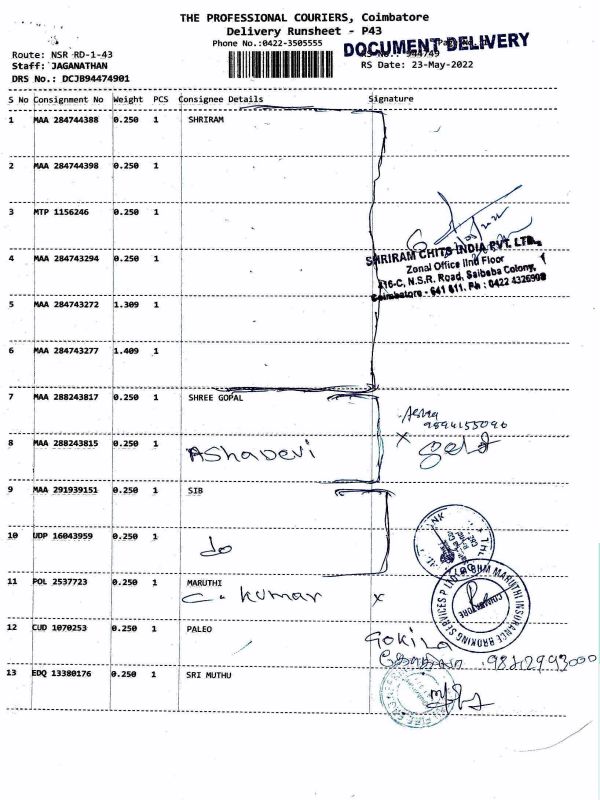 THE PROFESSIONAL COURIERS, Coimbatore
Delivery Runsheet - P43
Phone No.:0422-3505555
DOCUMENT DELIVERY
Route: NSR RD-1-43
944749
Staff: JAGANATHAN
RS Date: 23-May-2022
DRS No.: DCJB94474901
S No Consignment No Weight PCS Consignee Details Signature
1 MAA 284744388 0.250 1 SHRIRAM
2 MAA 284744398 0.250 1
3 MTP 1156246 0.250 1
6
SHRIRAM CHITS INDIA PVT. LTD.,
4 MAA 284743294 0.250 1
Zonal Office IInd Floor
416-C, N.S.R. Road, Saibaba Colony,
Coimbatore - 641 011. Ph : 0422 4326909
5 MAA 284743272 1.309 1
6 MAA 284743277 1.409 1
7 MAA 288243817 0.250 1 SHREE GOPAL
Asha
9894155096
8 MAA 288243815 0.250 1
AShaDevi
x
9 MAA 291939151 0.250 1 SIB
10 UDP 16043959 0.250 1
do
11 POL 2537723 0.250 1 MARUTHI
C. Kumar x
BHM MARUTHI INSURANCE BROKING SERVICES P LTD
COIMBATORE
12 CUD 1070253 0.250 1 PALEO
Gokila
13 EDQ 13380176 0.250 1 SRI MUTHU